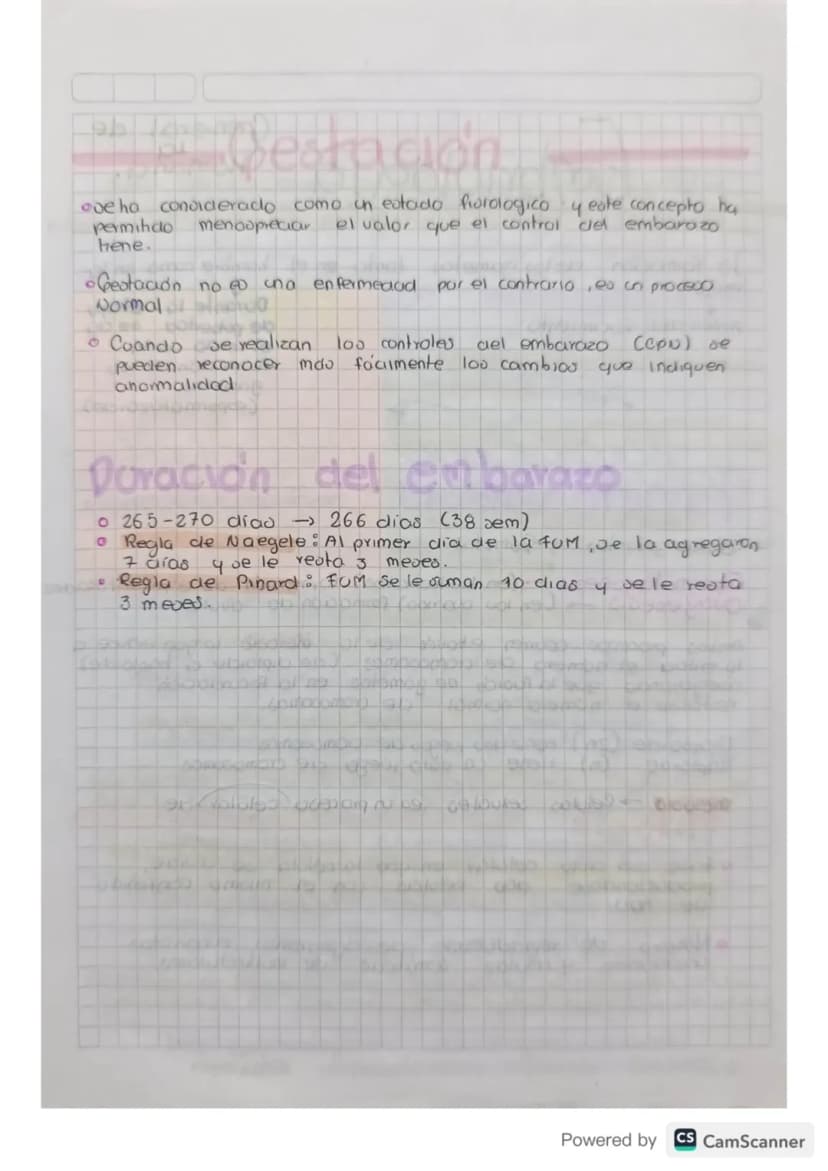 Gestación
Se ha considerado como un estado fisiologico y este concepto ha
permitido menospreciar el valor que el control del embarazo
tiene.
Gestación no es una enfermedad por el contrario, es un proceso
Normal
Cuando se realizan los controles del embarazo (CPN) se
pueden reconocer mas fácilmente los cambios que indiquen
anormalidad
Duración del embarazo
265-270 días → 266 dias (38 sem)
Regla de Naegele: Al primer dia de la FUM, se la agregaron
7 días y se le resta 3 meses.
Regla de Pinard: FUM se le suman 10 dias y se le resta
3 meses.
Powered by CS CamScanner